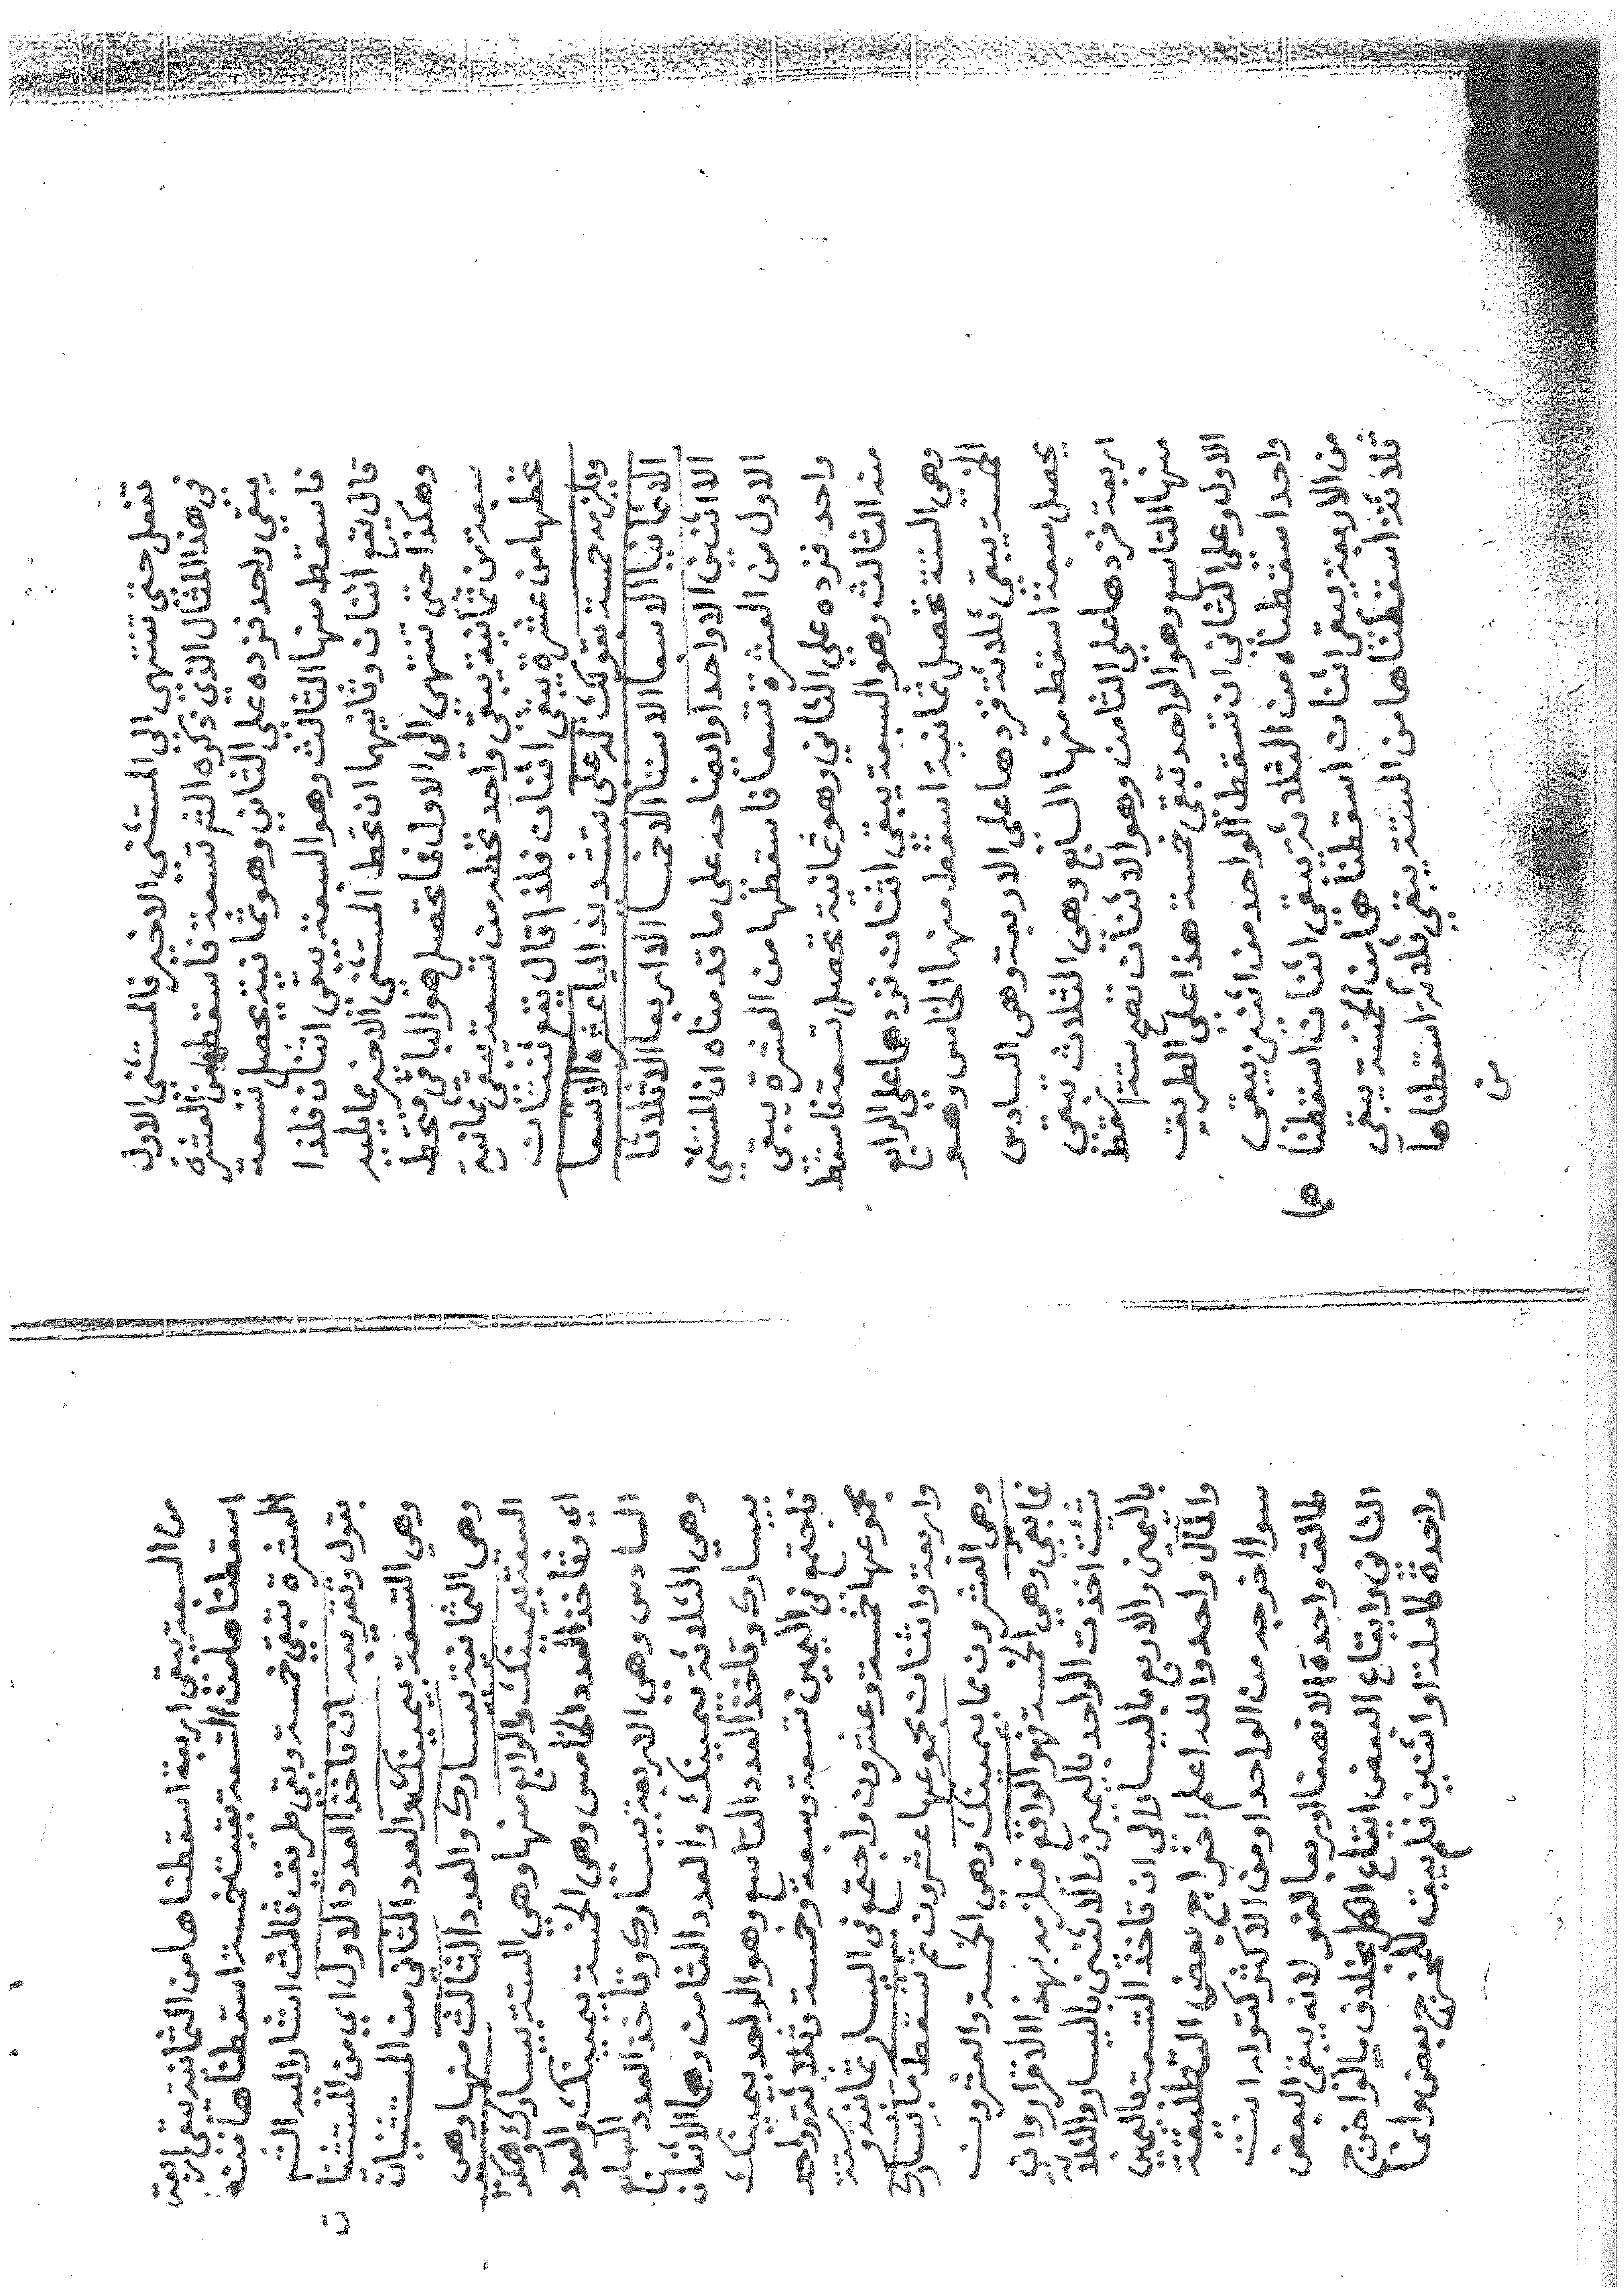 تفعل حتى تنتهى الى المستثنى الاخير فالمستثنى الاول
فى هذا المثال الذي ذكره الشر تسعة فاسقطها من العشرة
يبقى واحد فزده على الثاني وهو ثمانية يحصل تسعة
فاسقط منها الثالث وهو السبعة يبقى اثنان فلذا
قال تقع اثنان وثانيها ان تحط المستثنى الاخير مما يليه
وهكذا حتى تنتهى الى الاول فما تحصل فهو الباقى فتحط
سبعة من ثمانية يبقى واحد تحطه من تسعة يبقى ثمانية
تحطها من عشره يبقى اثنان فلذا قال تقع ثنتان
ويلزمه خمسة بقولك له على عشره الا تسعا
الا ثمانيا الا سبعا الا ستا الا خمسا الا اربعا الا ثلاثا
الا اثنين الا واحدا وايضاحه على ما قدمناه ان المستثنى
الاول من العشرة تسعا فاسقطها من العشرة يبقى
واحد فزده على الثاني وهو ثمانية تحصل تسعة فاسقط
منه الثالث وهو السبعة يبقى اثنان فزدهما على الرابع
وهى الستة تحصل ثمانية اسقط منها الخامس وهو
الخمسة يبقى ثلاثة فزدها على الاربعة وهى السادس
يحصل سبعة اسقط منها السابع وهى الثلاث تبقى
اربعة فزدها على الثامن وهو الاثنان تصح ستة اسقط
منها التاسع وهو الواحد تبقى خمسة هذا على الطريق
الاول وعلى الثاني ان تسقط الواحد من اثنين يبقى
واحد اسقطناه من الثلاثة تبقى اثنان اسقطنا هما
من الاربعة يبقى اثنان اسقطناهما من الخمسة يبقى
ثلاثة اسقطناها من الستة يبقى ثلاثة اسقطناها
من
من السبعة يبقى اربعة اسقطناها من الثمانية تبقى اربعة
اسقطناها من التسعة بقيت خمسة اسقطناها من
العشرة تبقى خمسة وبقى طريق ثالث اشار اليه الشر
بقوله وتقريبه ان تاخذ العدد الاول اي من المستثنات
وهي التسعة بيمينك والعدد الثانى من المستثنيات
وهى الثمانية بيسارك والعدد الثالث منها وهى
السبعة بيمينك والرابع منها وهي الستة بيسارك وهكذا
اي تاخذ العدد الخامس وهى الخمسة بيمينك والعدد
السادس وهى الاربعة بيسارك وتاخذ العدد السابع
وهي الثلاثة بيمينك والعدد الثامن وهما الاثنان
بيسارك وتاخذ العدد التاسع وهو الواحد بيمينك
فاجتمع فى اليمين تسعة وسبعة وخمسة وثلاثة وواحد
مجموعها خمسة وعشرون واجتمع فى اليسار ثمانية وستة
واربعة واثنان مجموعها عشرون ثم تسقط ما بيسارك
وهى العشرون مما بيمينك وهي الخمسة والعشرون
فما بقي وهي الخمسة فهو الواقع فيلزمه بهذا الاقرار وان
شئت اخذت الواحد باليمين والاثنين باليسار والثلاثة
باليمين والاربع باليسار الى ان تاخذ التسعة باليمين
والمآل واحد والله اعلم اخراج بعض التطليقة
سوا اخرجه من الواحد او من الاكثر كقوله انت
طالق واحدة الا نصفا او ربعا لغو لانه يبقى البعض
الثاني وايقاع البعض ايقاع الكل بخلاف ما لو اخرج
واحدة كاملة او اثنين فلم يبق للمخرج بعض وانما